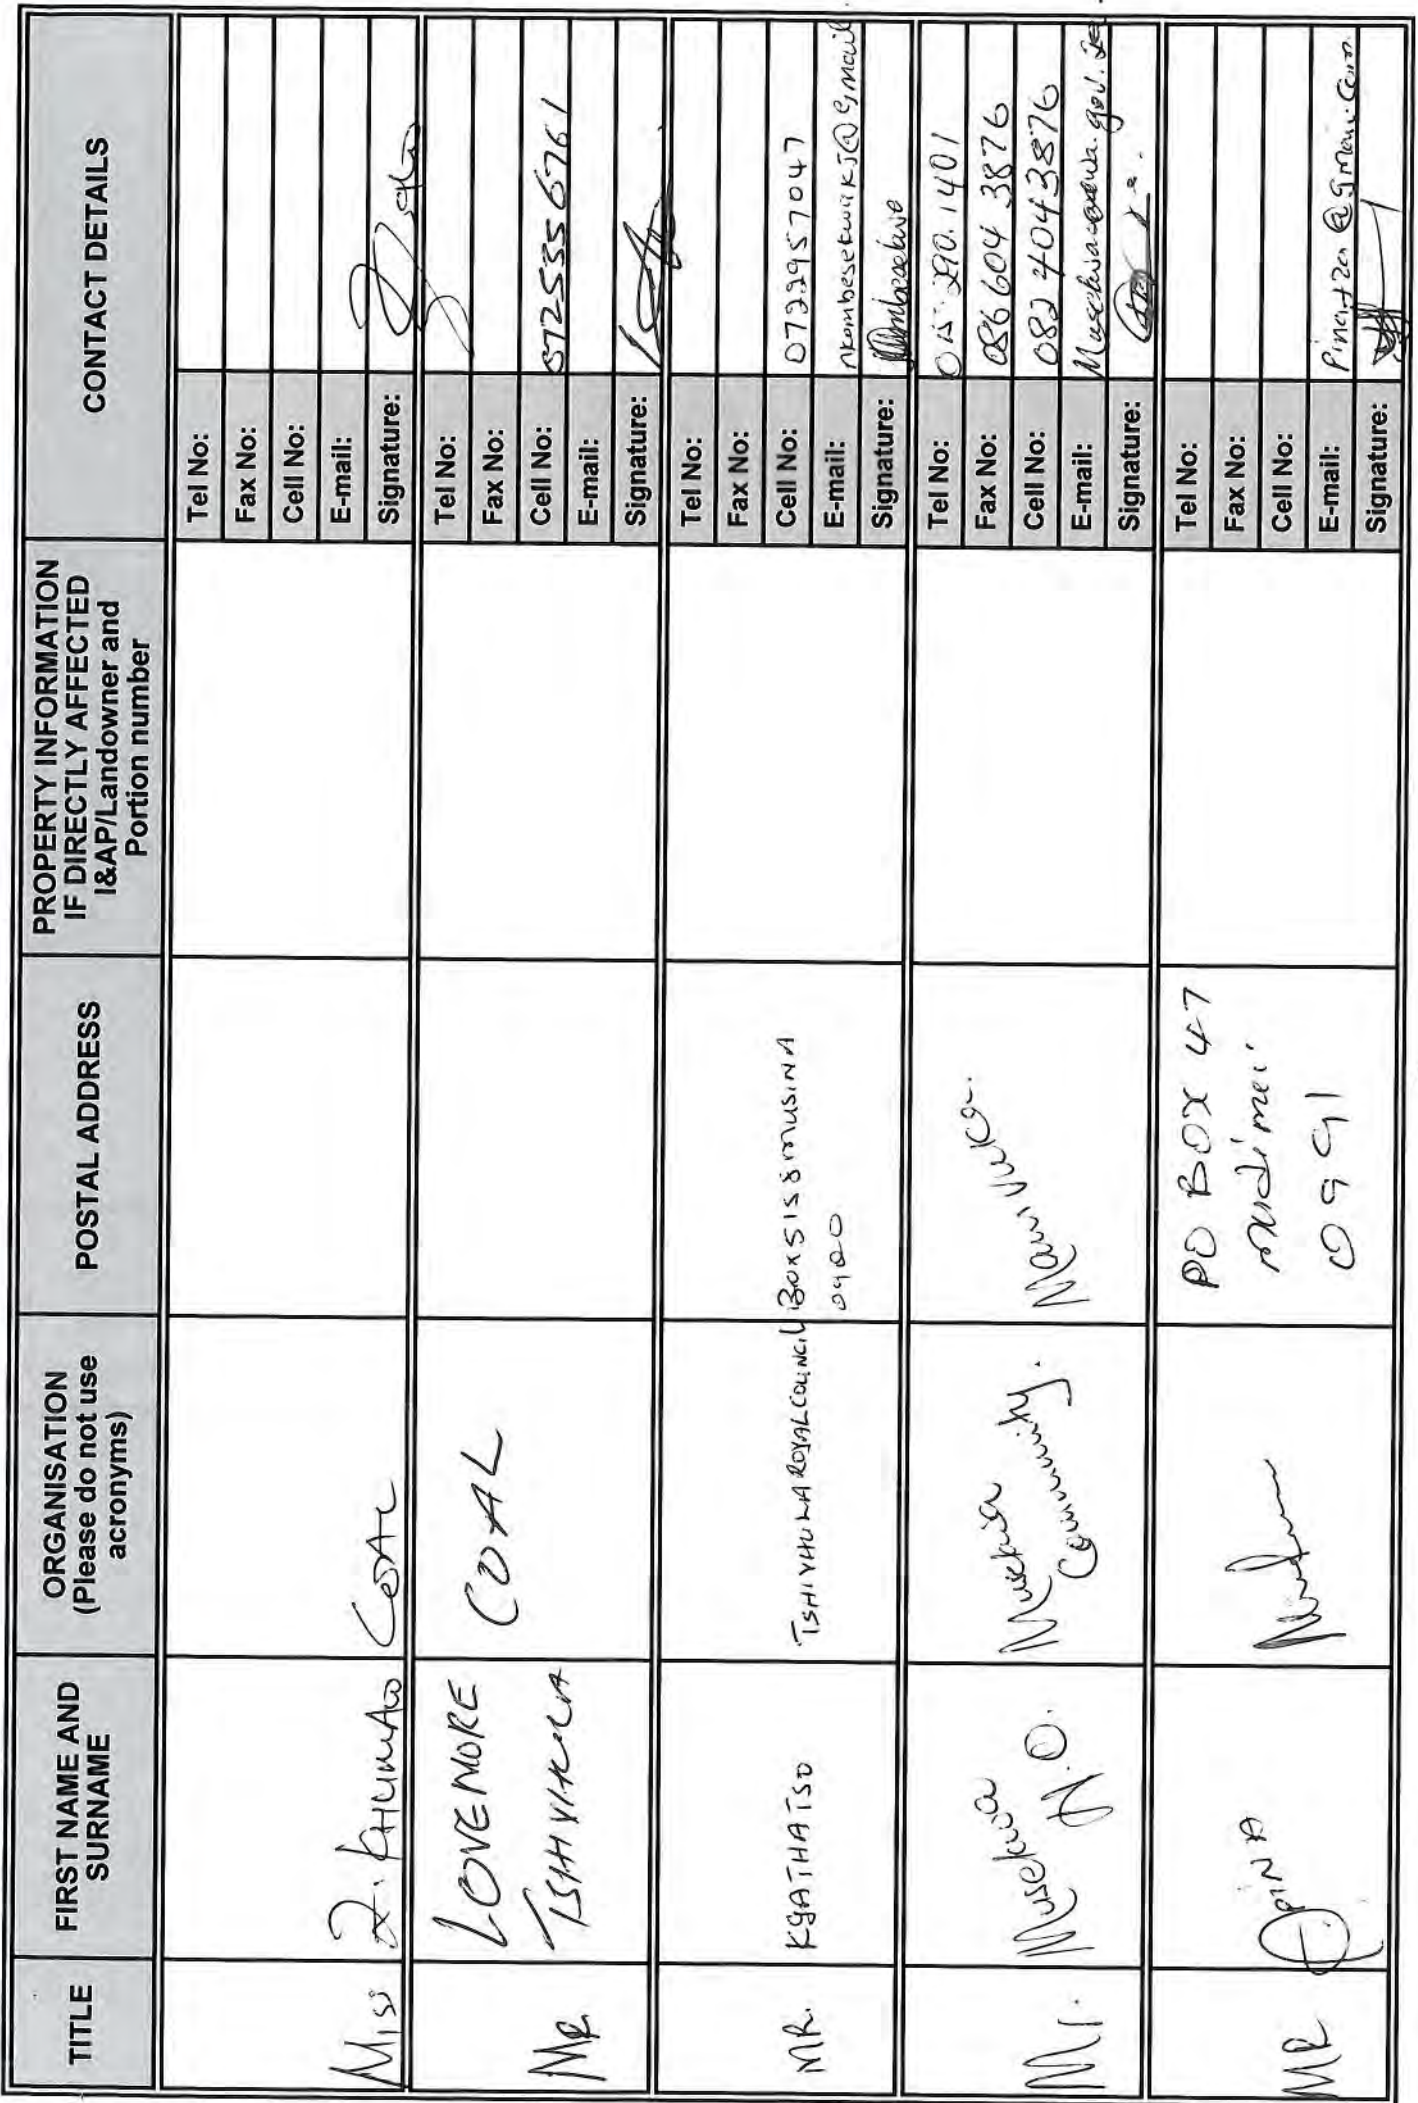 TITLE
FIRST NAME AND
SURNAME
ORGANISATION
(Please do not use
acronyms)
POSTAL ADDRESS
PROPERTY INFORMATION
IF DIRECTLY AFFECTED
I&AP/Landowner and
Portion number
CONTACT DETAILS
Miss
Z. KHUMALO
COAL
Tel No:
Fax No:
Cell No:
E-mail:
Signature:
MR
LOVEMORE
COAL
Tel No:
Fax No:
Cell No: 072555 6761
E-mail:
Signature:
MR.
KGATHATSO
ROYAL COUNCIL
BOX 515 8 MUSINA
0900
Tel No:
Fax No:
Cell No: 0722957047
E-mail: nkombesekwikj@gmail.
Signature:
Mr.
Musekwa
N.O.
Musekwa
Community.
Manivuka.
Tel No: 015 290.1401
Fax No: 086 604 3876
Cell No: 082 404 3876
E-mail:
Signature:
MR
PO BOX 47
0991
Tel No:
Fax No:
Cell No:
E-mail:
Signature: